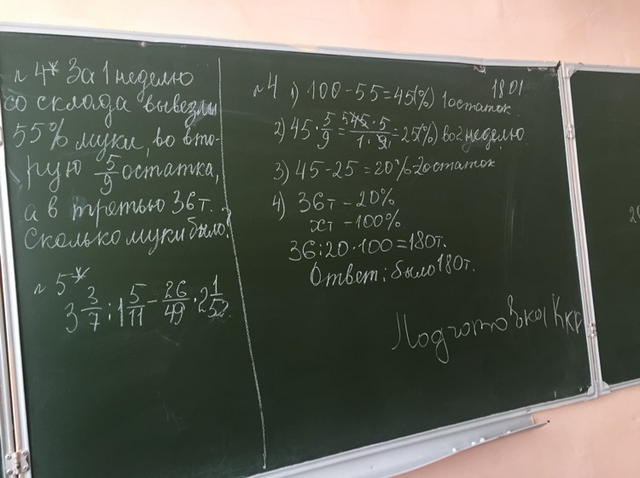 № 4* За 1 неделю
со склада вывезли
55% муки, во вто-
рую 5/9 остатка,
а в третью 36т.
Сколько муки было?
№ 5*
3 3/7 : 1 5/11 - 26/49 · 2 1/52
18 01
№ 4 1) 100-55=45(%) 1остаток
2) 45 · 5/9 = 45 · 5 / 1 · 9 = 25(%) во 2 неделю
3) 45-25=20% 2остаток
4) 36т - 20%
хт - 100%
36:20·100=180т.
Ответ: было 180т.
Подготовка к кр